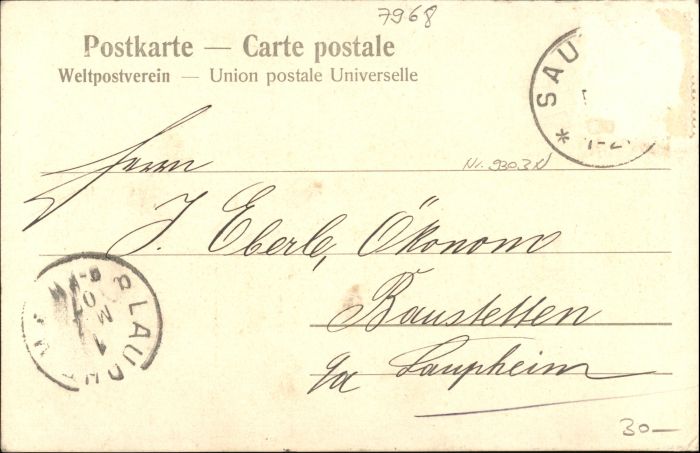 7968
Postkarte — Carte postale
Weltpostverein — Union postale Universelle
SAU
Herrn
Nr. 930.3N
J. Eberle, Ökonom
Baustetten
Laupheim
30—